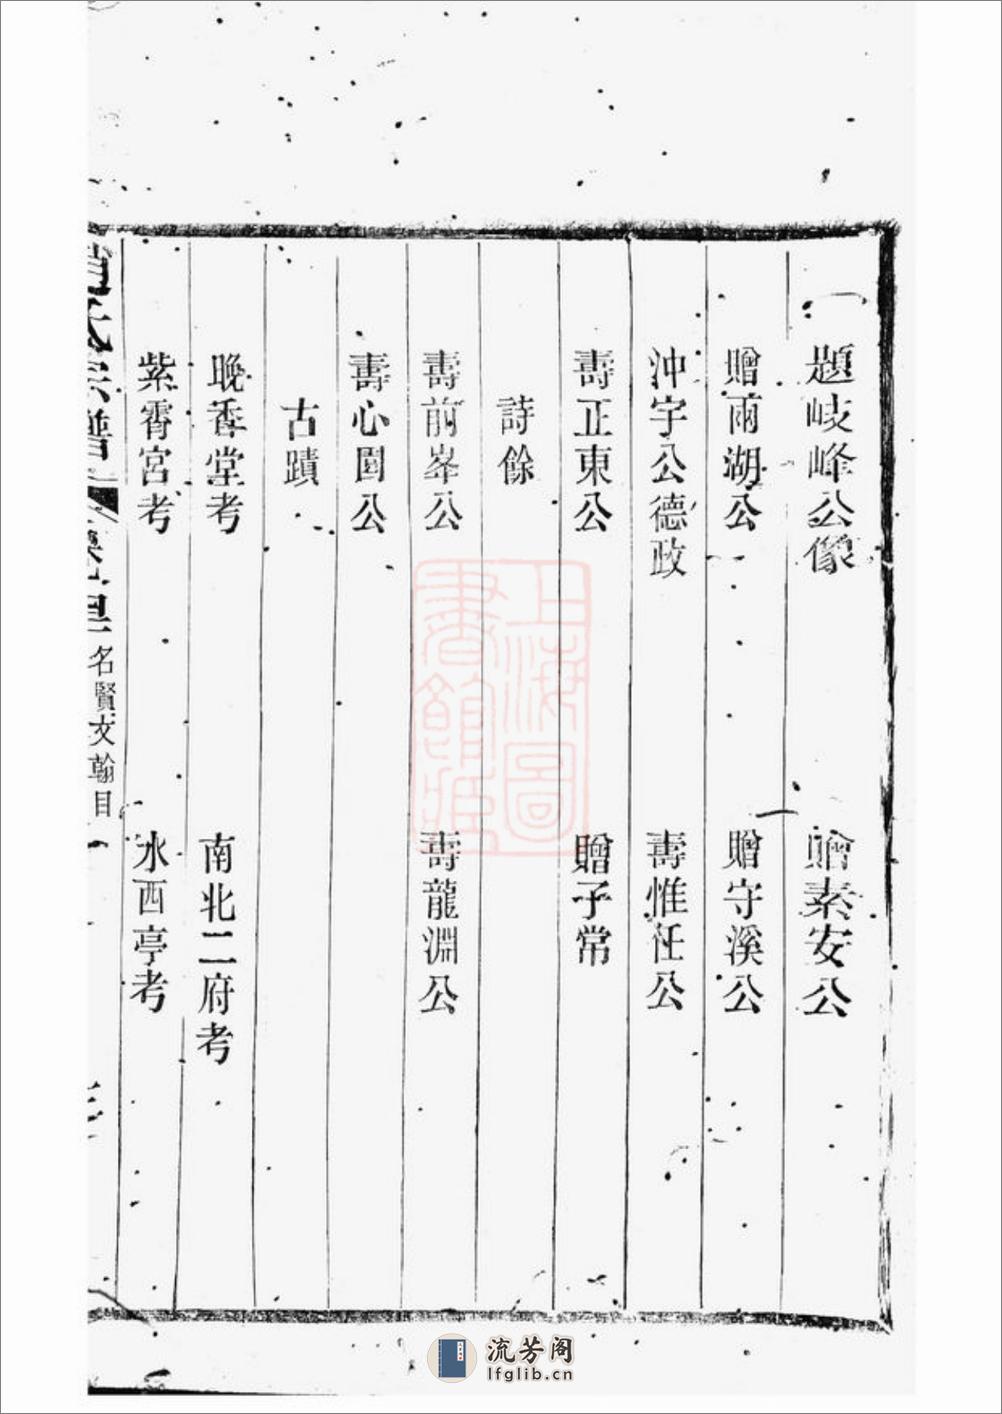 題岐峰公像　贈素安公
贈雨湖公　贈守溪公
沖宇公德政　壽惟任公
壽正東公　贈子常
詩餘
壽前峯公　壽龍淵公
壽心園公
古蹟
晚香堂考　南北二府考
紫霄宮考　水西亭考
氏宗譜
名賢文翰目
上海圖
書館藏
流芳阁
lfglib.cn